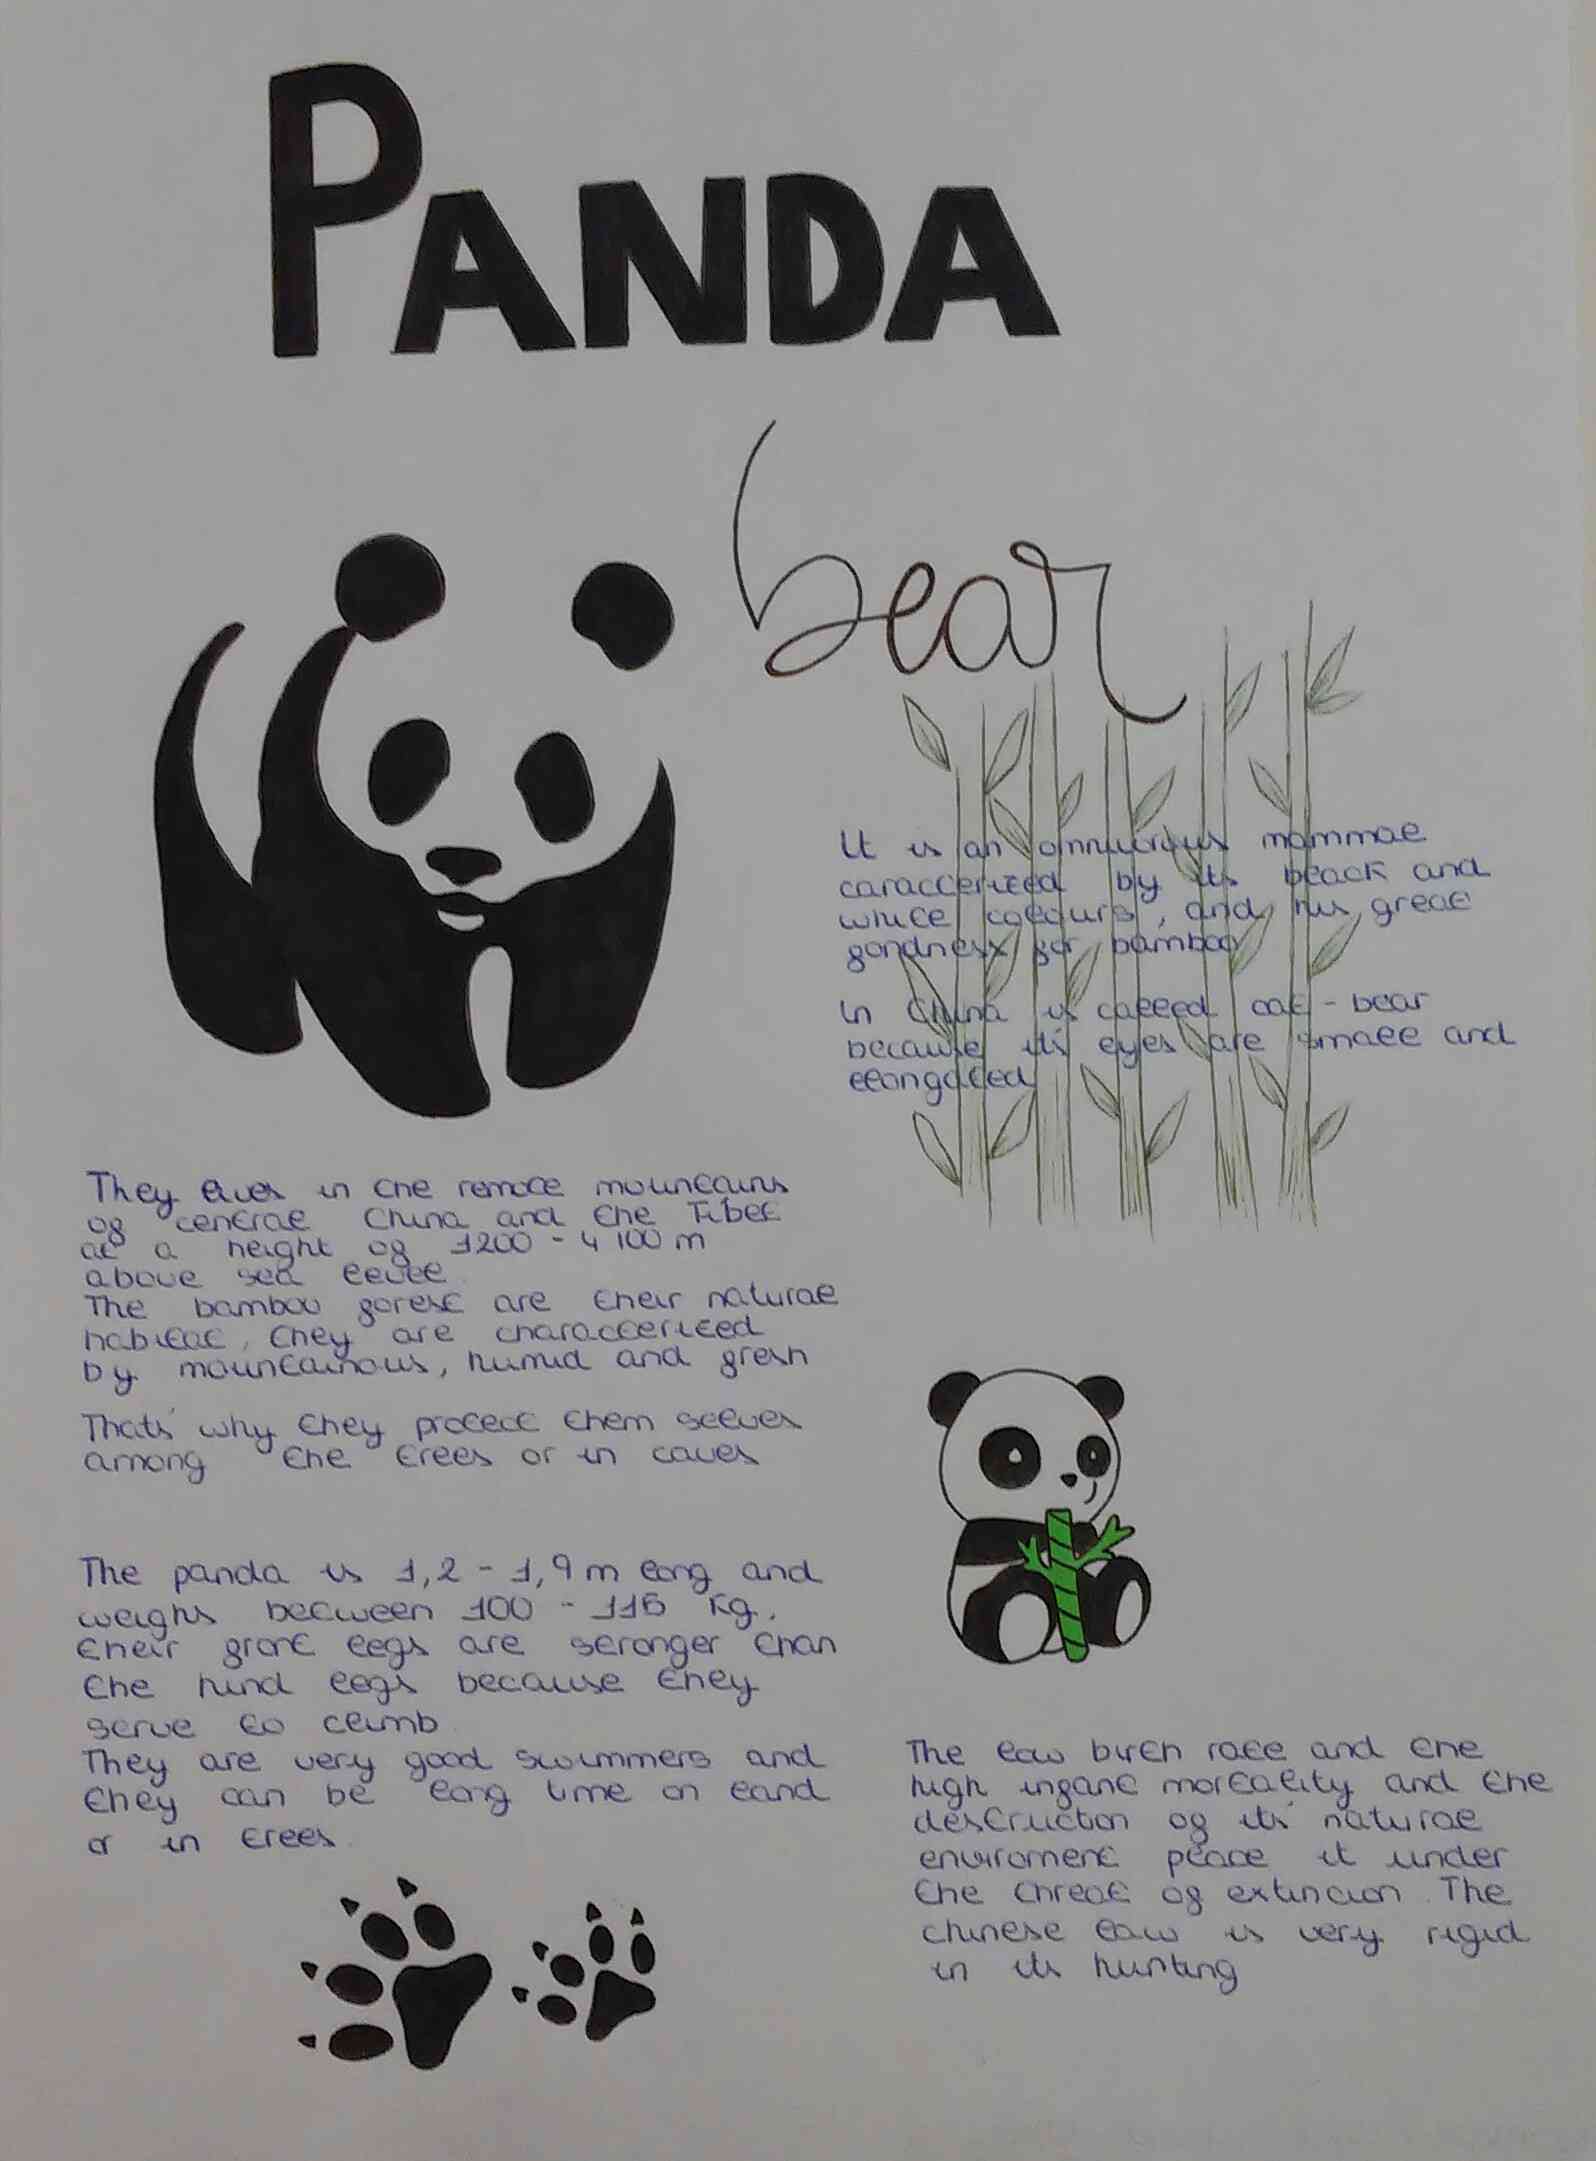 PANDA
bear
It is an omnivorous mammal
caracterized by its black and
white colours, and his great
fondness for bamboo
In China is called cat-bear
because its' eyes are small and
elongated
They lives in the remote mountains
of central China and the Tibet
at a height of 1200 - 4100 m
above sea level.
The bamboo forest are their natural
habitat, they are characterized
by mountainous, humid and fresh
Thats' why they protect them selves
among the trees or in caves
The panda is 1,2 - 1,9 m long and
weighs between 100 - 115 Kg.
their front legs are stronger than
the hind legs because they
serve to climb
They are very good swimmers and
they can be long time on land
or in trees.
The low birth rate and the
high infant mortality and the
destruction of its' natural
enviroment place it under
the threat of extincion. The
chinese law is very rigid
in its hunting